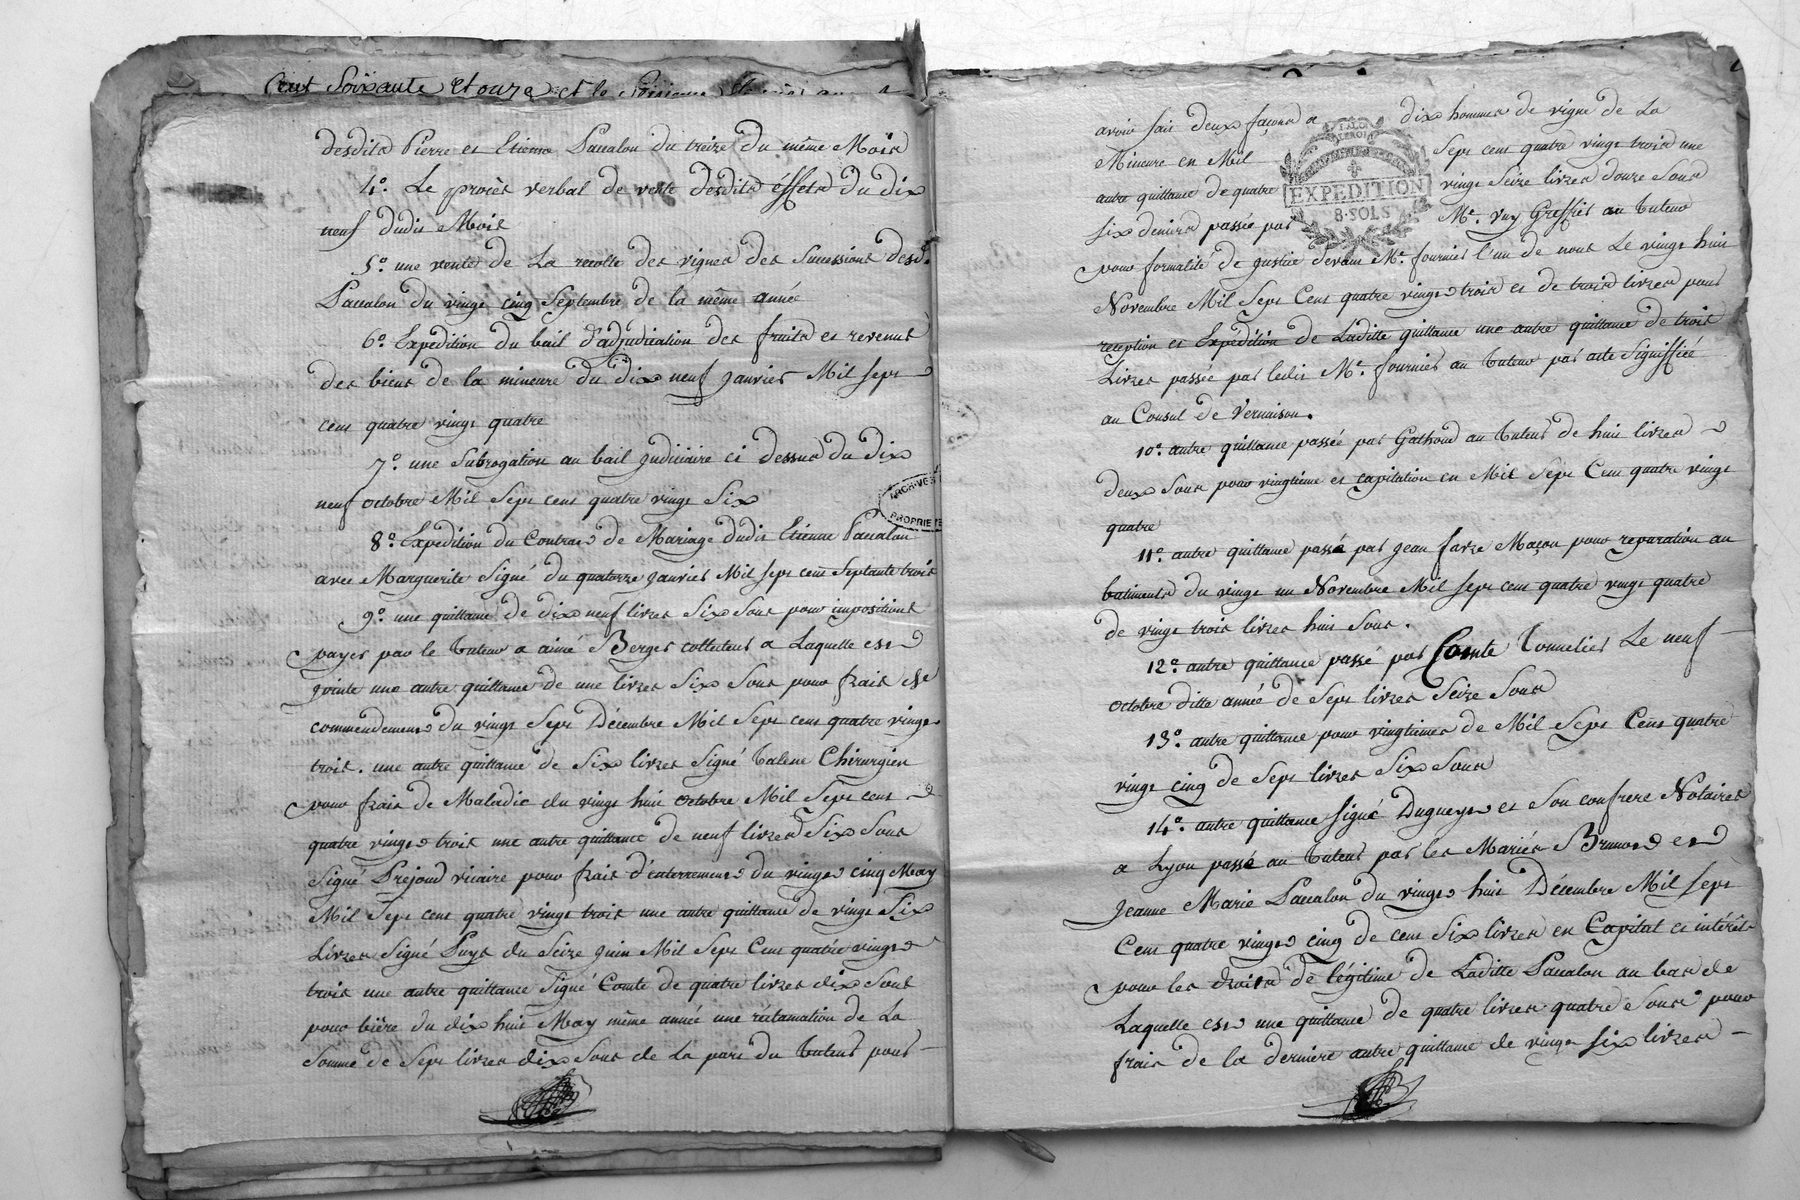 Cent Soixante et onze et le
desdits Pierre et Etienne Paccalon du treize du même Mois
4.° Le procès verbal de vente desdits éffets du dix
neuf dudit Mois
5.° une vente de La recolte des vignes des Successions desd.
Paccalon du vingt cinq Septembre de la même année
6.° Expédition du bail d'adjudication des fruits et revenus
des biens de la mineure du dix neuf janvier Mil sept
cent quatre vingt quatre
7.° une Subrogation au bail judiciaire ci dessus du dix
neuf octobre Mil Sept cent quatre vingt Six
8.° Expédition du Contrat de Mariage dudit Etienne Paccalon
avec Marguerite Signé du quatorze janvier Mil sept cent Septante trois
9.° une quittance de dix neuf livres Six Sous pour impositions
payer par le tuteur a aimé Berger collecteur a Laquelle est
jointe une autre quittance de une livres Six Sous pour frais de
commendement du vingt Sept Décembre Mil Sept cent quatre vingt
trois. une autre quittance de Six livres Signé Chirurgien
pour frais de Maladie du vingt huit octobre Mil Sept cent
quatre vingt trois une autre quittance de neuf livres Six Sous
Signé Préjoud vicaire pour frais d'enterrement du vingt cinq May
Mil Sept cent quatre vingt trois une autre quittance de vingt Six
Livres Signé Puys du Seize juin Mil Sept Cent quatre vingt
trois une autre quittance Signé Comte de quatre livres dix Sous
pour bière du dix huit May même année une réclamation de La
Somme de Sept livres dix Sous de la part du tuteur pour
ARCHIVES
PROPRIETE
avoir fait deux façons a dix hommes de vigne de La
Mineure en Mil Sept cent quatre vingt trois une
autre quittance de quatre vingt Seize livres douze Sous
six deniers passée par Me. Greffier au tuteur
EXPEDITION
8·SOLS
pour formalité de justice devant Me. fournier l'un de nous Le vingt huit
Novembre Mil Sept Cent quatre vingt trois et de trois livres pour
reception et Expédition de Laditte quittance une autre quittance de trois
Livres passée par ledit Me. fournier au tuteur par acte Signiffiée
au Consul de Vernaison.
10.° autre quittance passée par Gathoud au tuteur de huit livres
deux Sous pour vingtième et capitation en Mil Sept Cent quatre vingt
quatre
11.° autre quittance passé par jean favre Maçon pour reparation au
batiments du vingt un Novembre Mil sept cent quatre vingt quatre
de vingt trois livres huit Sous.
12.° autre quittance passé par Comte Tonnelier Le neuf
octobre ditte année de Sept livres Seize Sous
13.° autre quittance pour vingtièmes de Mil Sept Cent quatre
vingt cinq de Sept livres Six Sous
14.° autre quittance signé Dugueyt et Son confrere Notaires
a Lyon passé au tuteur par les Mariés Brunot et
jeanne Marie Paccalon du vingt huit Décembre Mil sept
Cent quatre vingt cinq de cent Six livres en Capital et intérêt
pour les droits de légitime de Laditte Paccalon au bas de
Laquelle est une quittance de quatre livres quatre Sous pour
frais de la derniere autre quittance de vingt six livres